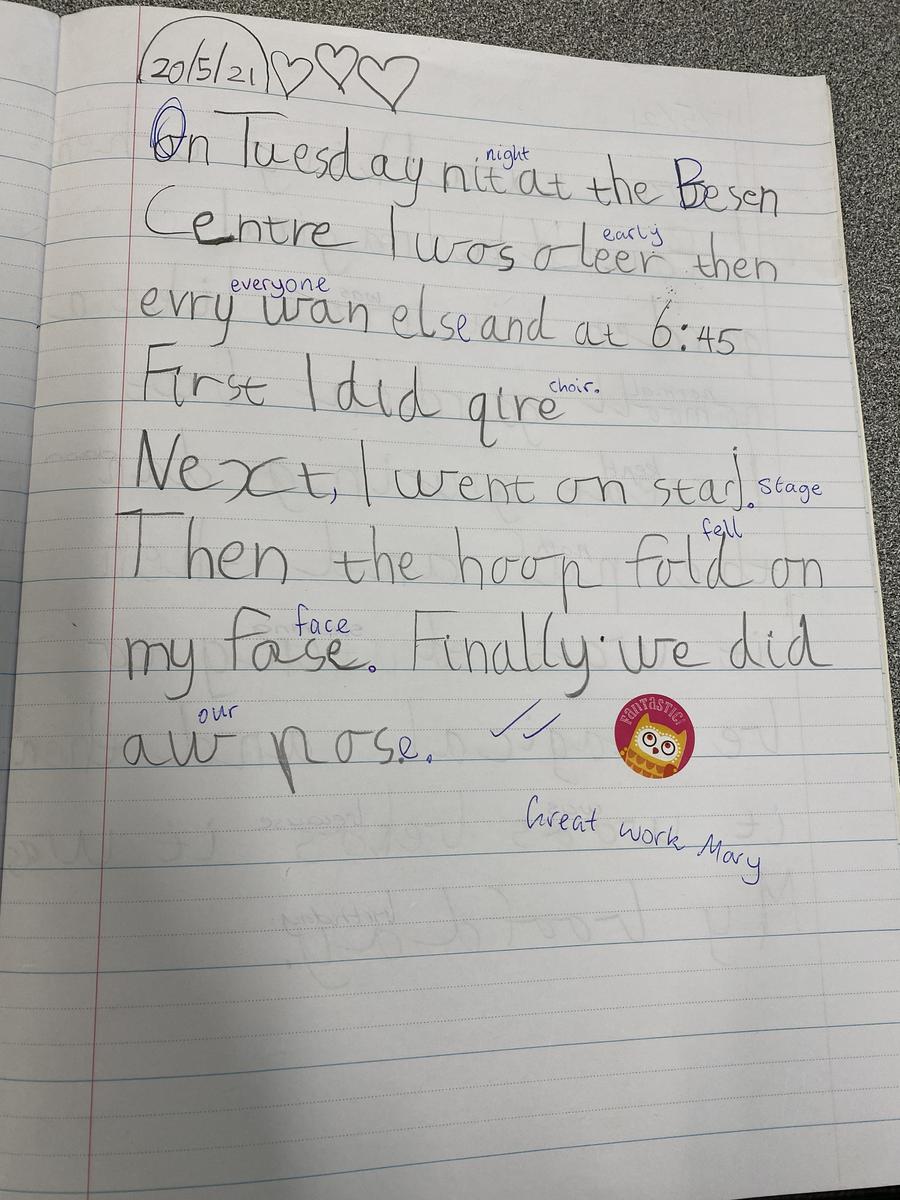 20/5/21
night
On Tuesday nit at the Besen
early
Centre I was oleer then
everyone
evry wan else and at 6:45
choir.
First I did qire
Next, I went on staj. stage
fell
Then the hoop fold on
face
my fase. Finally we did
our
aw pose.
FANTASTIC!
Great work Mary